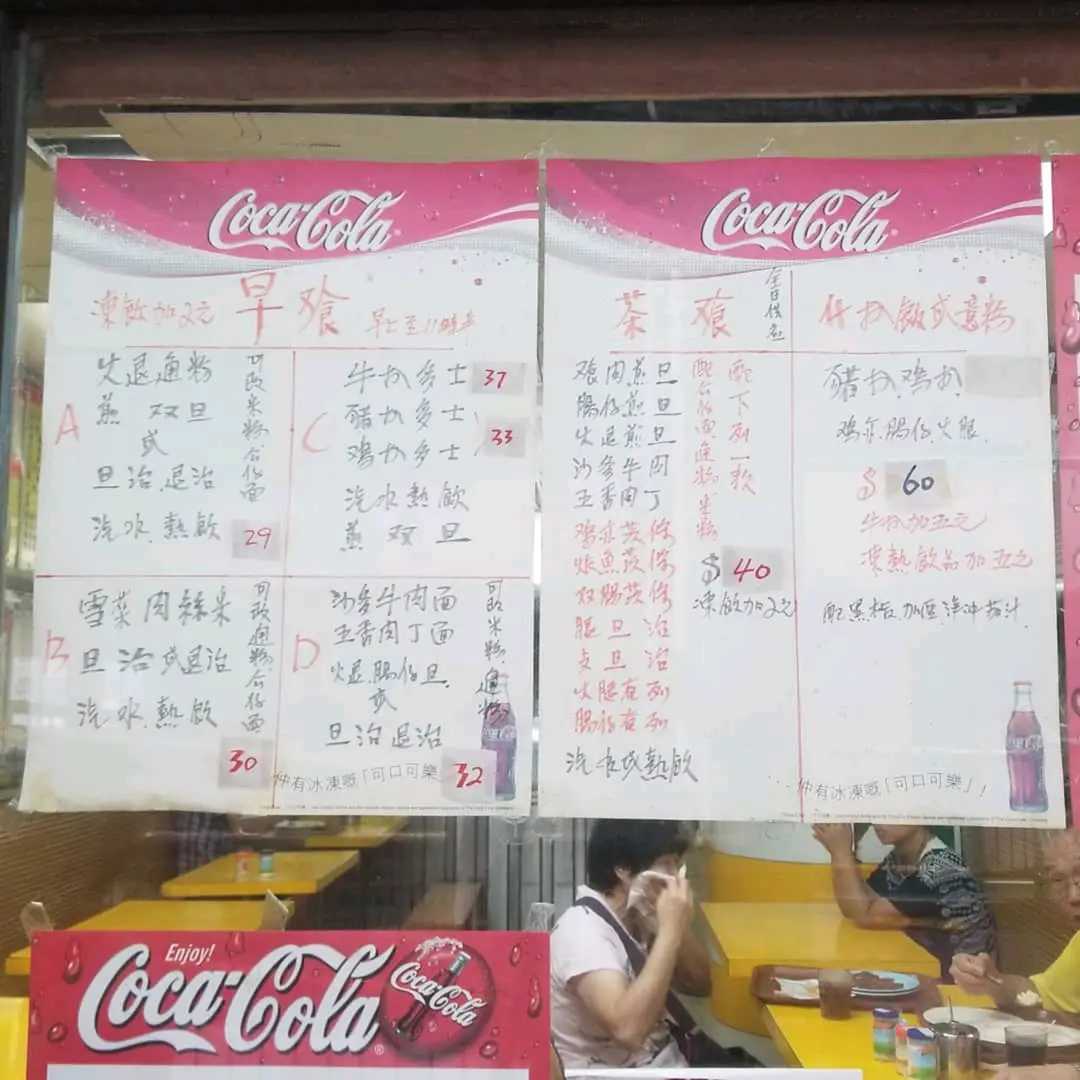 Coca-Cola
凍飲加2元
早飡
早七至11時半
A
火退通粉
煎 双旦
或
旦治.退治
汽水.熱飲
可改米粉公仔面
29
B
雪菜肉絲米
旦治或退治
汽水.熱飲
可改通粉公仔面
30
C
牛扒多士 37
豬扒多士
鸡扒多士
33
汽水熱飲
煎双旦
D
沙爹牛肉面
五香肉丁面
火退.腸仔旦.
或
旦治退治
可改米粉.通粉
32
仲有冰凍嘅「可口可樂
Coca-Cola
茶飡
全日供应
飡肉煎旦
腸仔煎旦
火退煎旦
沙爹牛肉
五香肉丁
双腸
腿旦治
火腿
腸仔
汽水或熱飲
配公仔面通粉米粉
配下列一款
$ 40
凍飲加2元
什扒飯或意粉
豬扒.鸡扒.
腸仔.火腿.
$ 60
牛扒加五元
凍熱飲品加五元
仲有冰凍嘅「可口可樂」!
Enjoy!
Coca-Cola
Coca-Cola